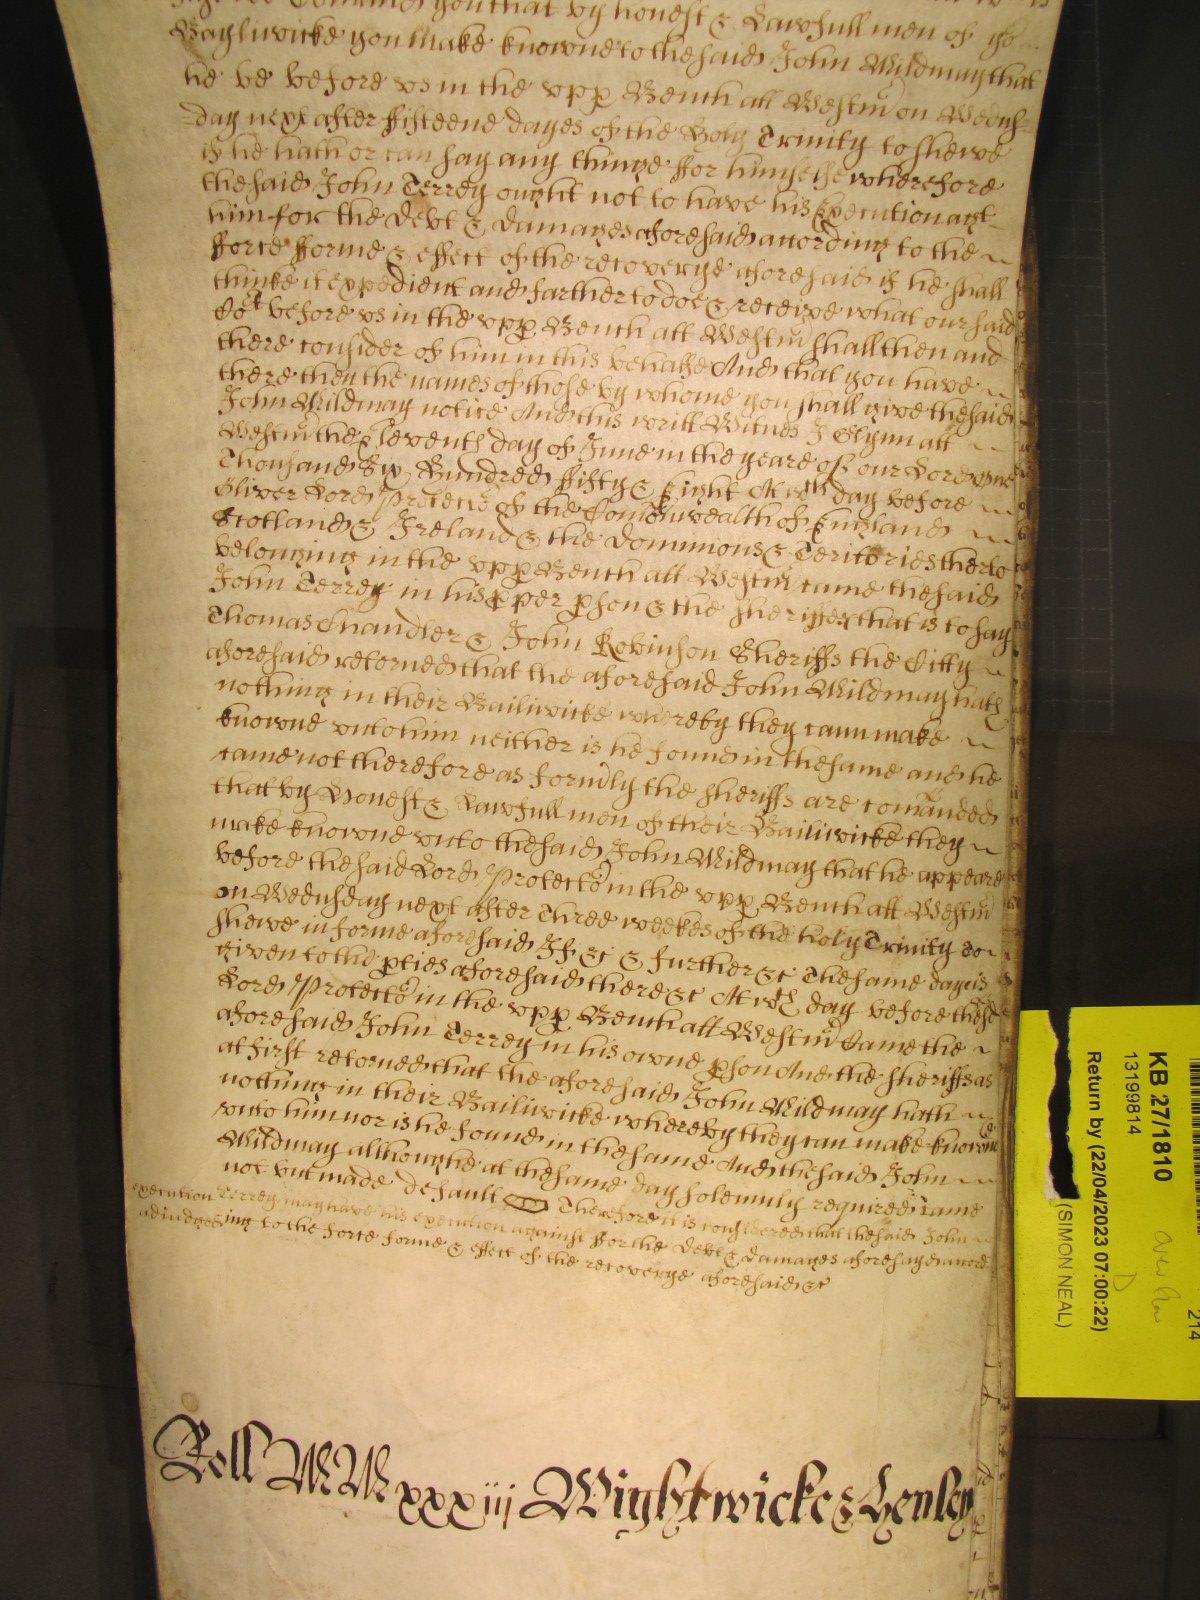 Comand you that by honest & Lawfull men of yo
Bayliwicke you make knowne to the said John Mildmay that
he be before vs in the vpp Bench att Westm on Wednes=
day next after fifteene dayes of the Holy Trinity to shewe
if he hath or can say any thinge ffor himselfe wherefore
the said John Terrey ought not to have his Execution agt
him for the debt & damages aforesaid according to the
fforce fforme & effect of the recoverye aforesaid if he shall
thinke it expedient and farther to doe & receive what our said
Cort before vs in the vpp Bench att Westm shall then and
there consider of him in this behalfe And that you have
there then the names of those by whome you shall give the said
John Mildmay notice And this writt Witnes J Glynn att
Westm the Eleventh day of June in the yeare of our Lord one
Thousand Six Hundred ffifty & Eight At wch day before
Oliver Lord Protector of the Comonwealth of England
Scotland & Ireland & the dominions & Teritories therto
belonging in the vpp Bench att Westm came the said
John Terrey in his pper pson & the sheriffes that is to say
Thomas Chandler & John Robinson Sheriffs the Citty
aforesaid retorned that the aforesaid John Mildmay hath
nothing in their Bailiwicke whereby they cann make
knowne vnto him neither is he found in the same and he
came not therefore as formly the sheriffs are comanded
that by Honest & Lawfull men of their Bailiwicke they
make knowne vnto the said John Mildmay that he appeare
before the said Lord Protector in the vpp Bench att Westm
on Wednsday next after Three weekes of the holy Trinity to
shewe in forme aforesaid If &c & further &c The same day is
given to the pties aforesaid there &c At wch day before the sd
Lord Protector in the vpp Bench att Westm Came the
aforesaid John Terrey in his owne pson And the sheriffs as
at first retorned that the aforesaid John Mildmay hath
nothing in their Bailiwicke whereby they can make knowne
vnto him nor is he found in the same And the said John
Mildmay although he at the same day solemnly required came
not but made default Therefore it is considered that the said John
execution Terrey may have his execution against ffor the debt & damages aforesayd accord
adiudged ing to the force forme & effect of the recoverye aforesaid &c
Roll MM xxxiij Wightwicke & Henley
214
KB 27/1810
13199814
Return by (22/04/2023 07:00:22)
(SIMON NEAL)